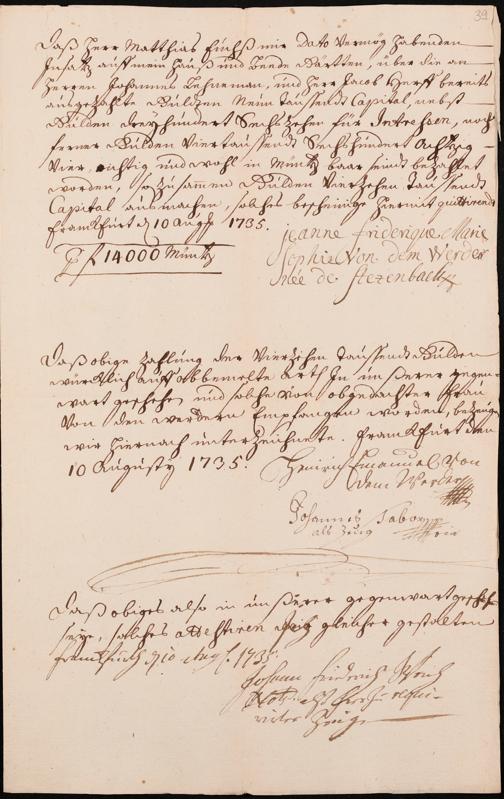 39
Daß Herr Matthias Fuchß mir Dato Vermög habenden
Insatz auff mein Hauß und beede Gärtten, über die an
Herren Johannes Lehneman, und Herr Jacob bereits
außgezahlte Gulden Neun Taussendt Capital, nebst
Gulden Dreyhundert Sechszehen für Intressen, noch
ferner Gulden Viertaussendt Sechshundert Achtzig
Vier, richtig und wohl in Müntz baar seindt bezahlet
worden, so zusammen Gulden Vierzehen Taussendt
Capital ausmachen, solches bescheinige hiermit quittirendt
Franckfurt d 10 Aug 1735.
f 14000 Müntz
Jeanne Friderique Marie
Sophie Von dem Werder
Née de Stezenbach
Daß obige Zahlung der Vierzehen Taussendt Gulden
würcklich auff obbemelte Arth In unßerer gegen-
wart geschehen und solche von obgedachter Frau
Von den Werdern Empfangen worden, bezeugen
wir hiernach unterzeichnete. Franckfurt den
10 Augusty 1735.
Henrich Emanuel von
dem Werder
Johannes Tabor
als Zeug
Daß obiges also in unßerer gegenwart gescheh
seye, solches attestiren gleicher gestalten
Franckfurth d 10 Aug. 1735.
Johann Friederich
Not: als hierzu requi-
rirter Zeuge